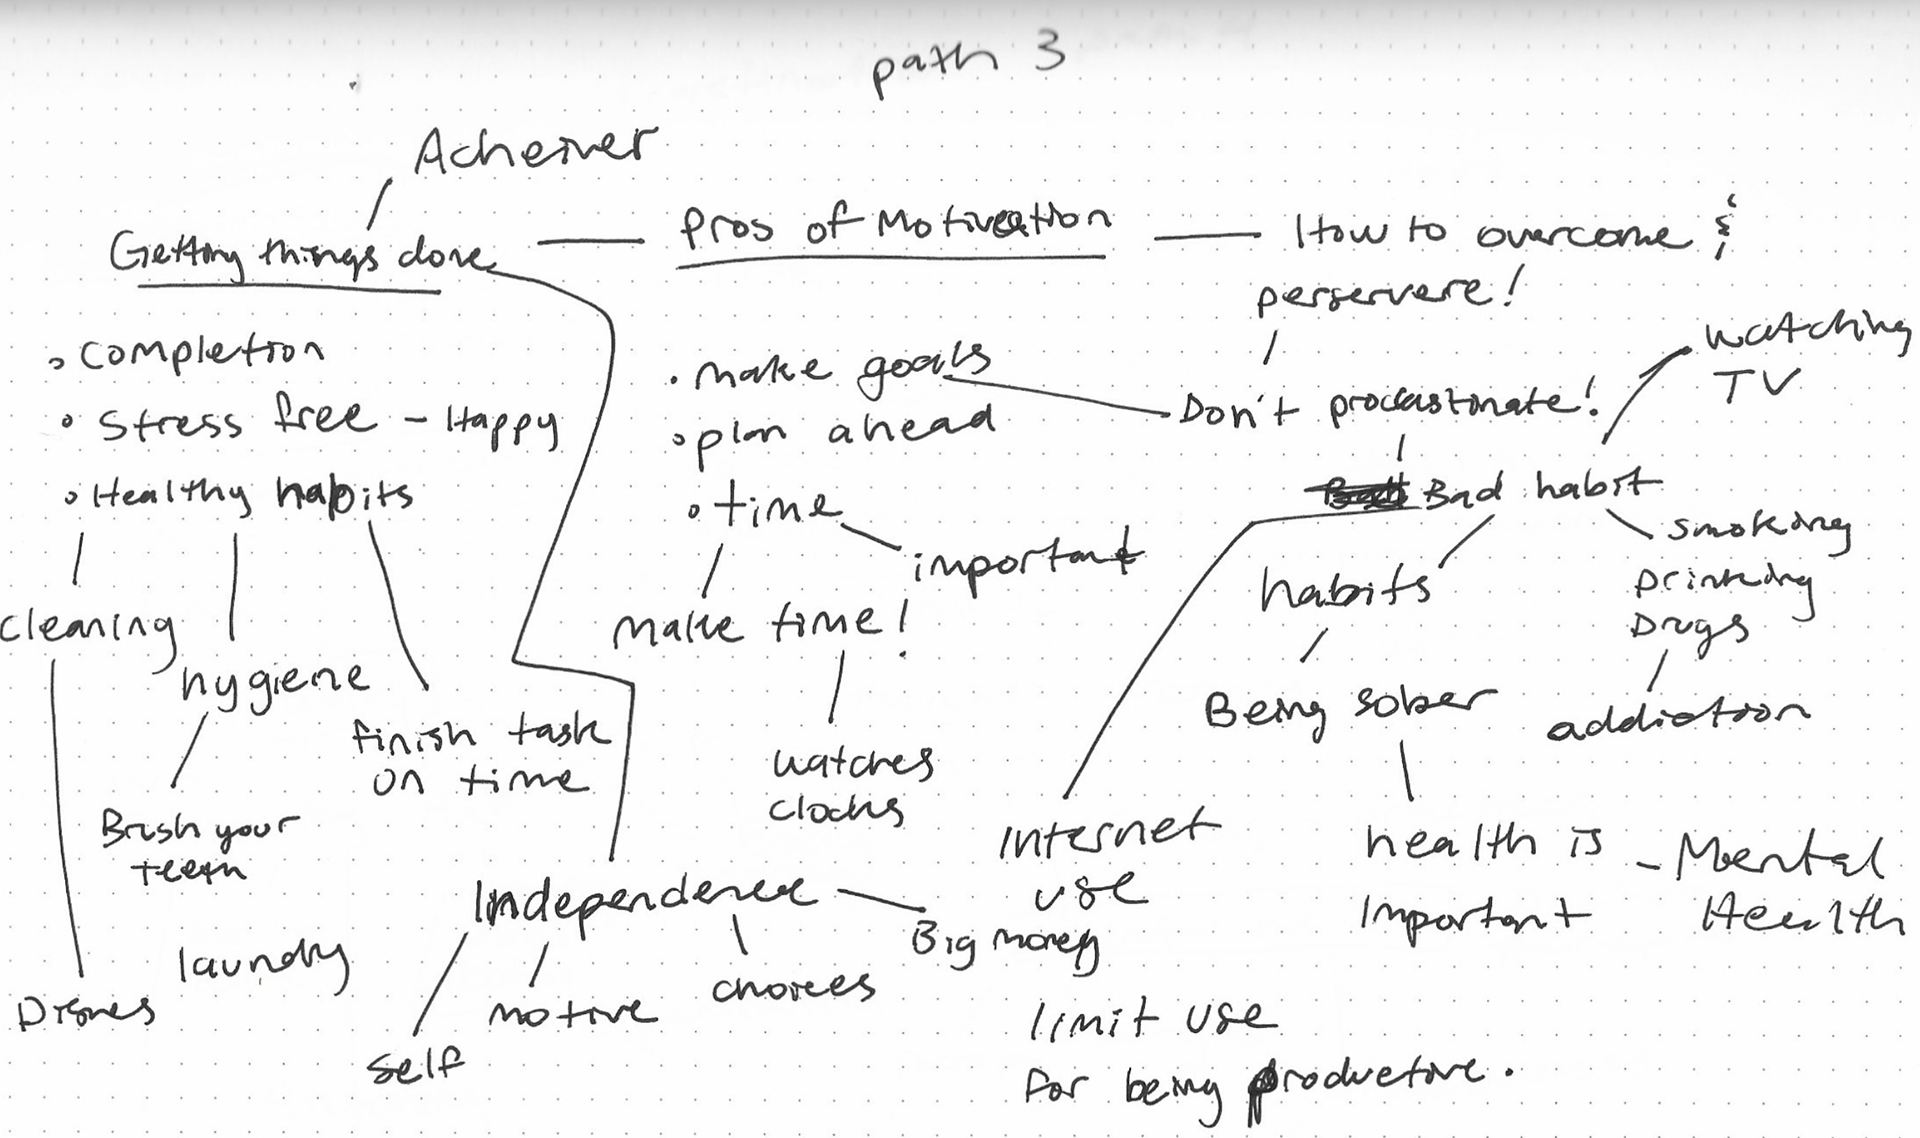 path 3
Acheiver
Getting things done
Pros of Motivation
How to overcome &
perservere!
• Completion
• Stress free - Happy
• Healthy habits
cleaning
hygiene
finish task
on time
Brush your
teeth
laundry
Dishes
• make goals
• plan ahead
• time
important
make time!
watches
clocks
Independence
Big money
self
motive
choices
Don't procrastinate!
Bad habit
watching
TV
smoking
Drinking
Drugs
addiction
habits
Being sober
health is
important
- Mental
Health
Internet
use
limit use
for being productive.